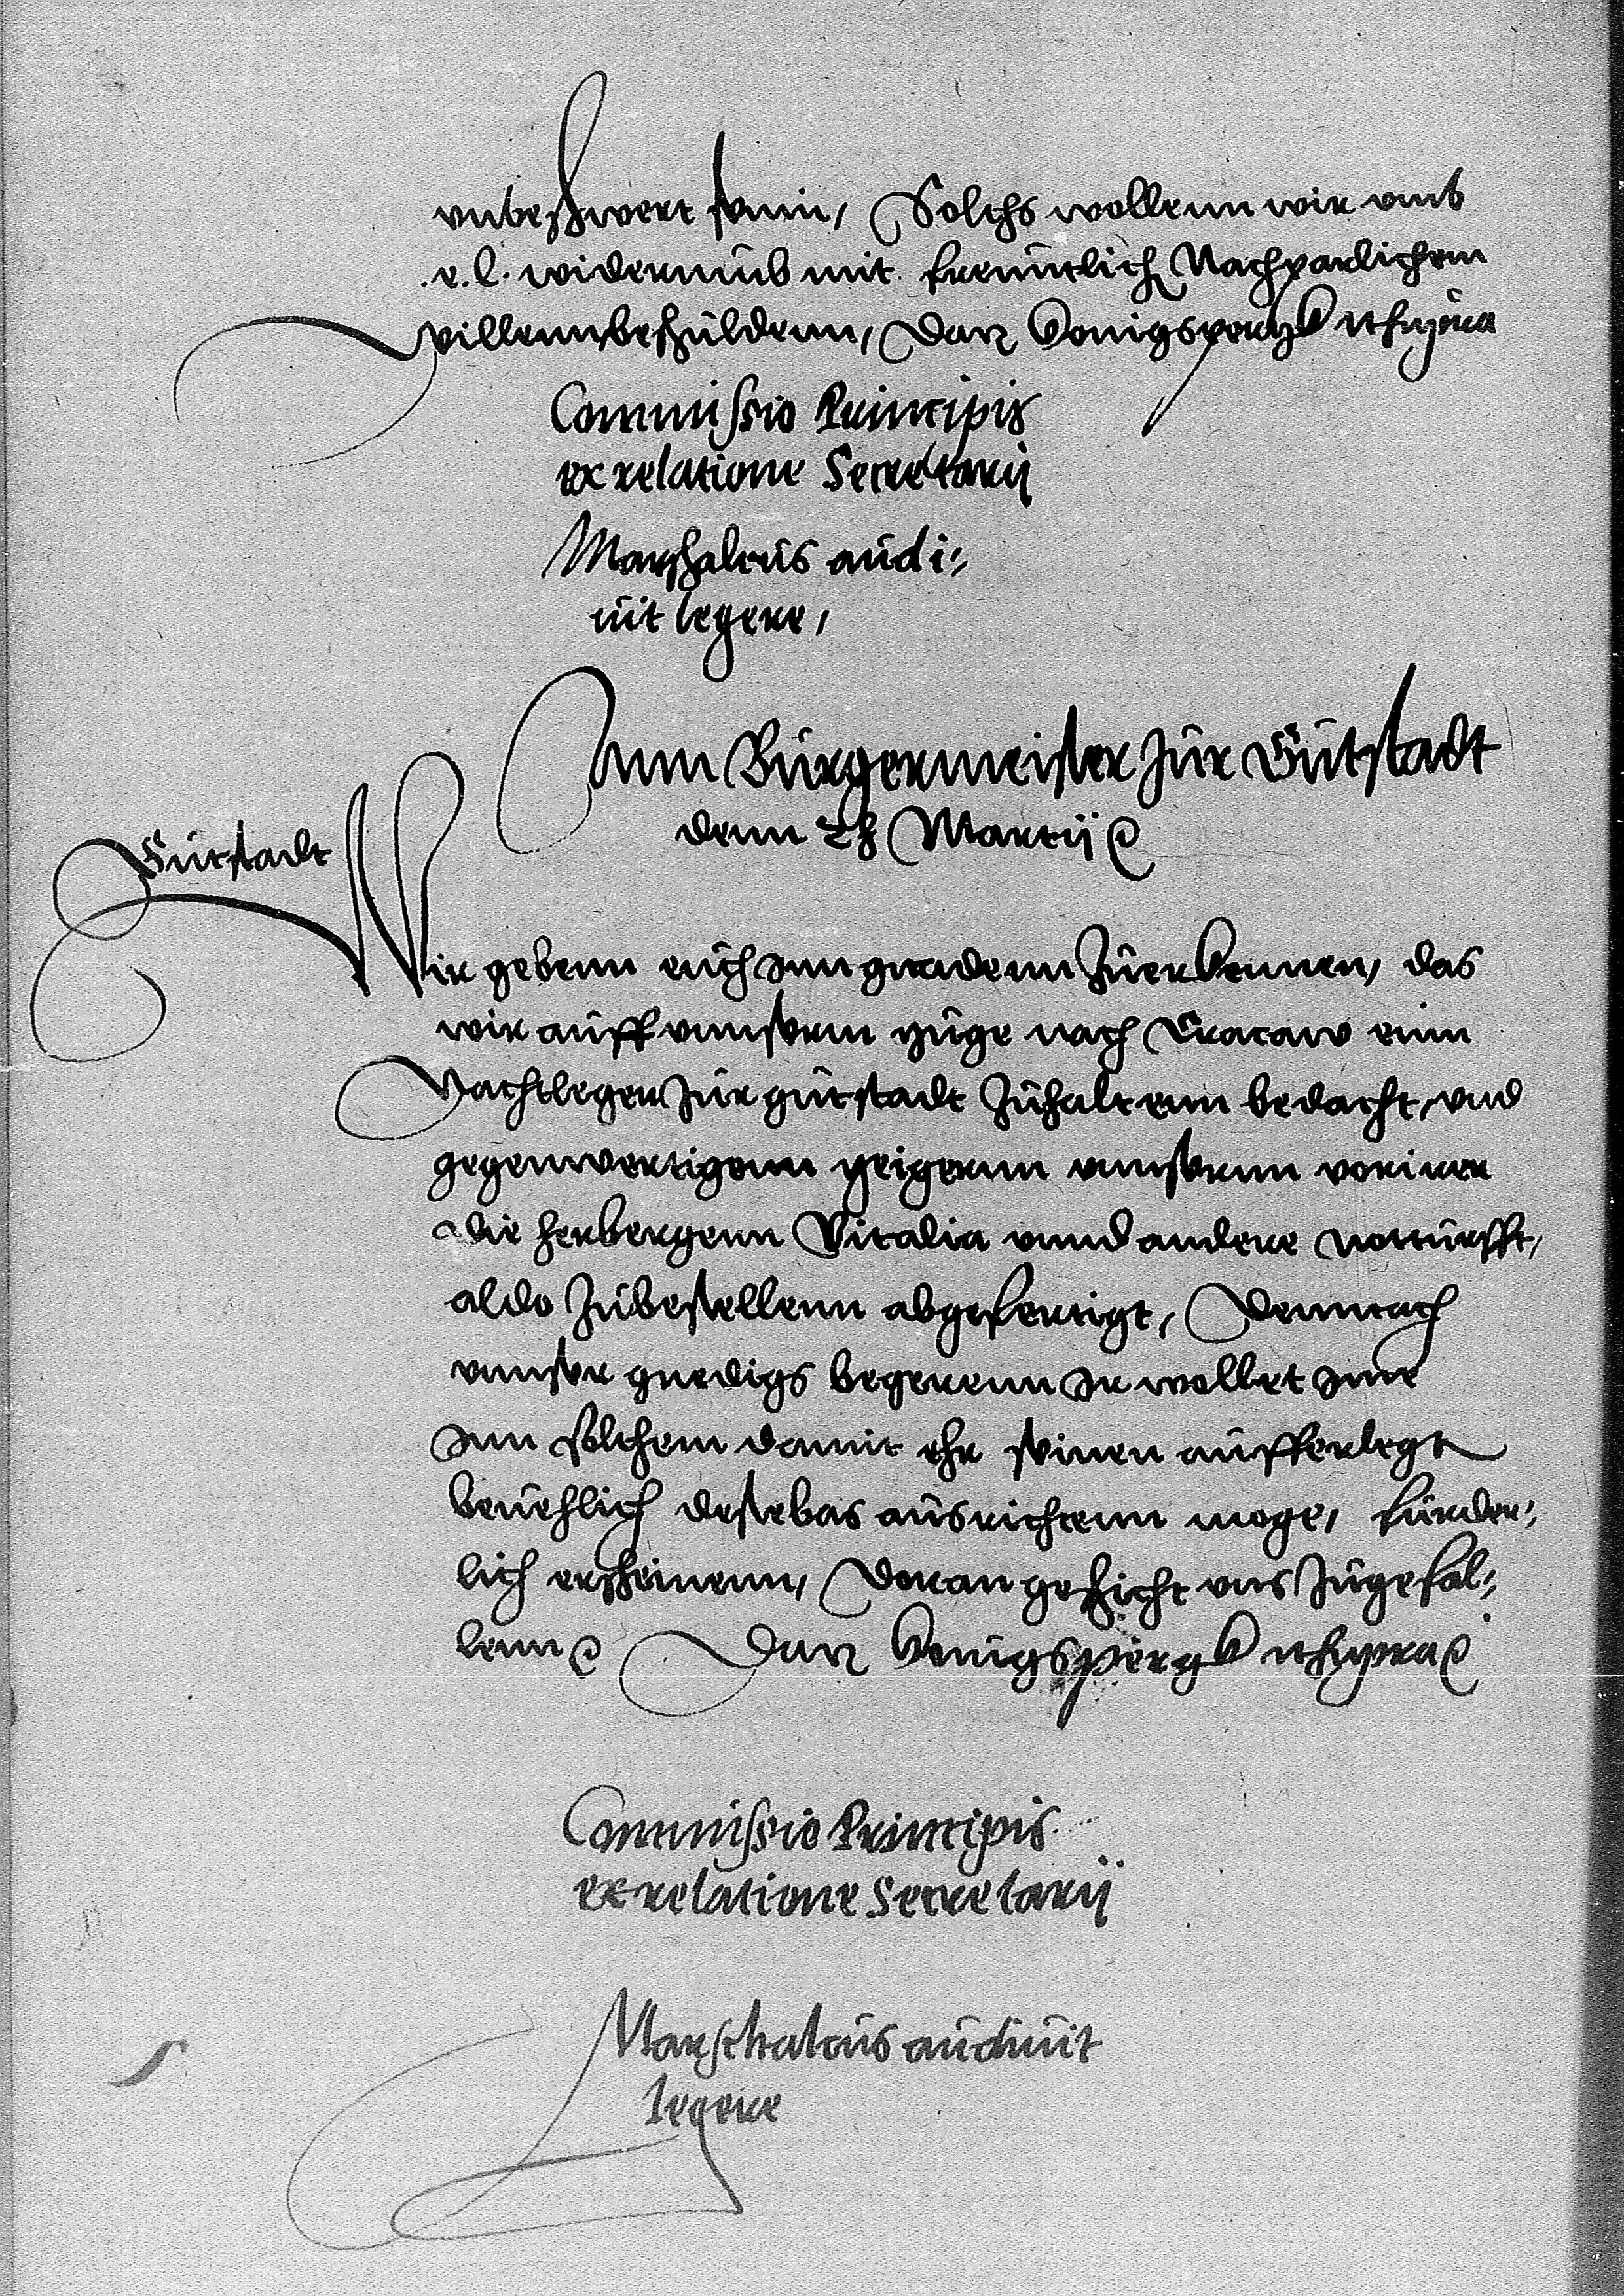 vnbeschwert sein, Solchs wollenn wir vmb
.e.l. widerumb mit freuntlich Nachparlichem
willenn beschuldenn, Datz Konigspergk ut supra
Commissio Principis
ex relatione Secretarij
Marschalcus audi-
uit legere,
Ann Burgermeister zur Gutstadt
denn Martij
Gutstadt
Wir gebenn euch inn gnadenn zuerkennen, das
wir auff vnnserm zuge nach Cracaw einn
Nachtleger zur gutstadt zuhaltenn bedacht, vnd
gegenwertigenn zeigernn vnnsernn vorirer
die herbergenn Vitalia vnnd andere notturfft,
aldo zubestellenn abgefertigt, Demnach
vnnser gnedigs begerenn ir wollet ime
inn solchem damit ehr seinen aufferlegt
beuehlich destebas ausrichtenn moge, furder-
lich erscheinenn, Doran geschicht vns zugefal-
lenn Datz Konigspergk ut supra
Commissio Principis
ex relatione Secretarij
Marschalcus audiuit
legere